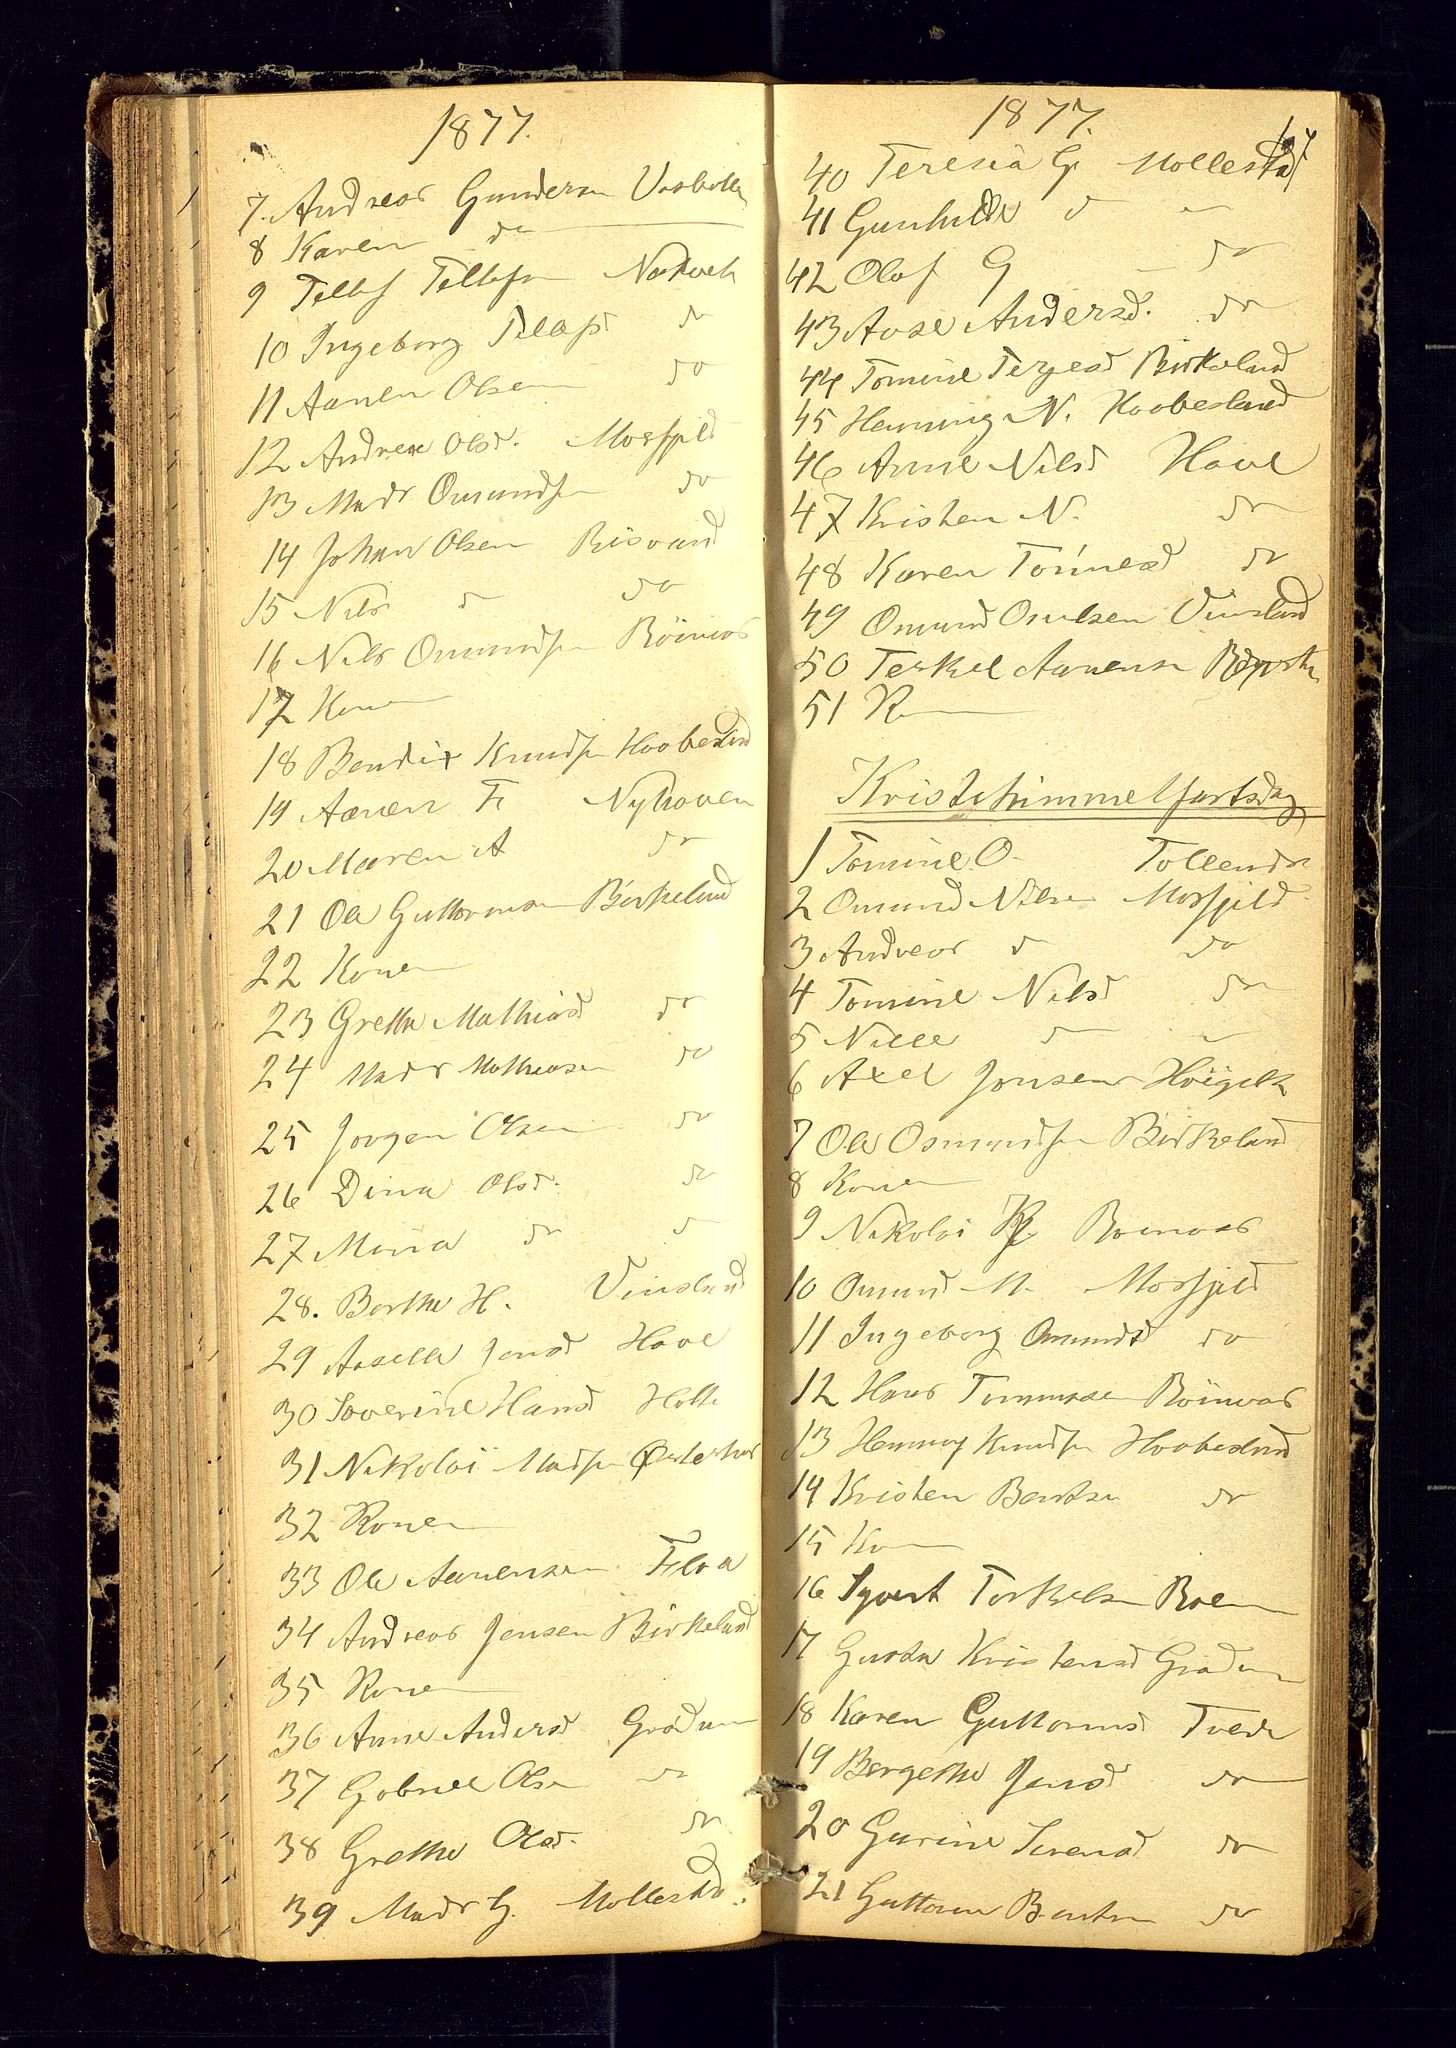 1877.
7. Andreas Gundersen
8 Karen do
9 Tellef Tellefsen
10 Ingeborg do
11 Aanen Olsen do
12 Andrea Olsd. Mosfjeld
13 Mads Omundsen do
14 Johan Olsen Risvand
15 Nils d do
16 Nils Omundsen Röinaas
17 Konen
18 Bendix Knudsen Haabesland
19 Aanen F Nyhaven
20 Maren A do
21 Ole Guttormsen Birkeland
22 Konen
23 Grethe Mathiasd do
24 Mads Mathiasen do
25 Jørgen Olsen do
26 Dina Olsd. do
27 Mina do d
28. Berthe H. Vinsland
29 Aaselle Jensd Have
30 Severine Hansd Holte
31 Nikolai Madsen
32 Konen
33 Ole Aanensen Flaa
34 Andreas Jensen Birkeland
35 Konen
36 Anne Andersd Gradum
37 Gabriel Olsen do
38 Grethe Olsd. do
39 Mads G. Mollestad.
1877.
40 Teresia G Mollestad
41 Gunhilde d
42 Olaf G do
43 Aase Andersd. do
44 Tomine Terjesd Birkeland
45 Henning N. Haabesland
46 Anne Nilsd Have
47 Kristen N. do
48 Karen Tönnesd do
49 Omund Osulsen Vinsland
50 Terkel Aanensen
51 K
Kristihimmelfartsdag
1 Tomine O.
2 Omund Nilsen Mosfjeld
3 Andreas d do
4 Tomine Nilsd do
5 Nille d
6 Axel Jensen
7 Ole Osmundsen Birkeland
8 Konen
9 Nikolai Roinaas
10 Omund M. Mosfjeld
11 Ingeborg Omundsd do
12 Hans Tommesen Röinaas
13 Henning Knudsen Haabesland
14 Kristen Bentsen do
15 Kon
16 Syvert Torkelsen Roen
17 Gusta Kristensd Gradum
18 Karen Guttormsd Tvede
19 Bergethe Jensd do
20 Gurine Sørensd do
21 Guttorm Bentsen do